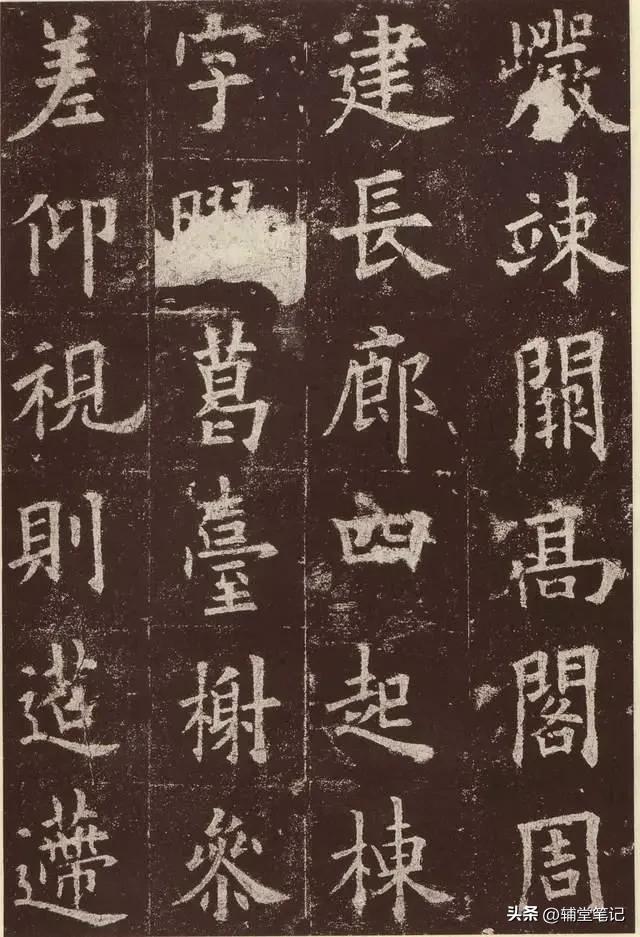 巖竦闕高閣周
建長廊四起棟
宇葛臺榭參
差仰視則迢遰
头条 @辅堂笔记